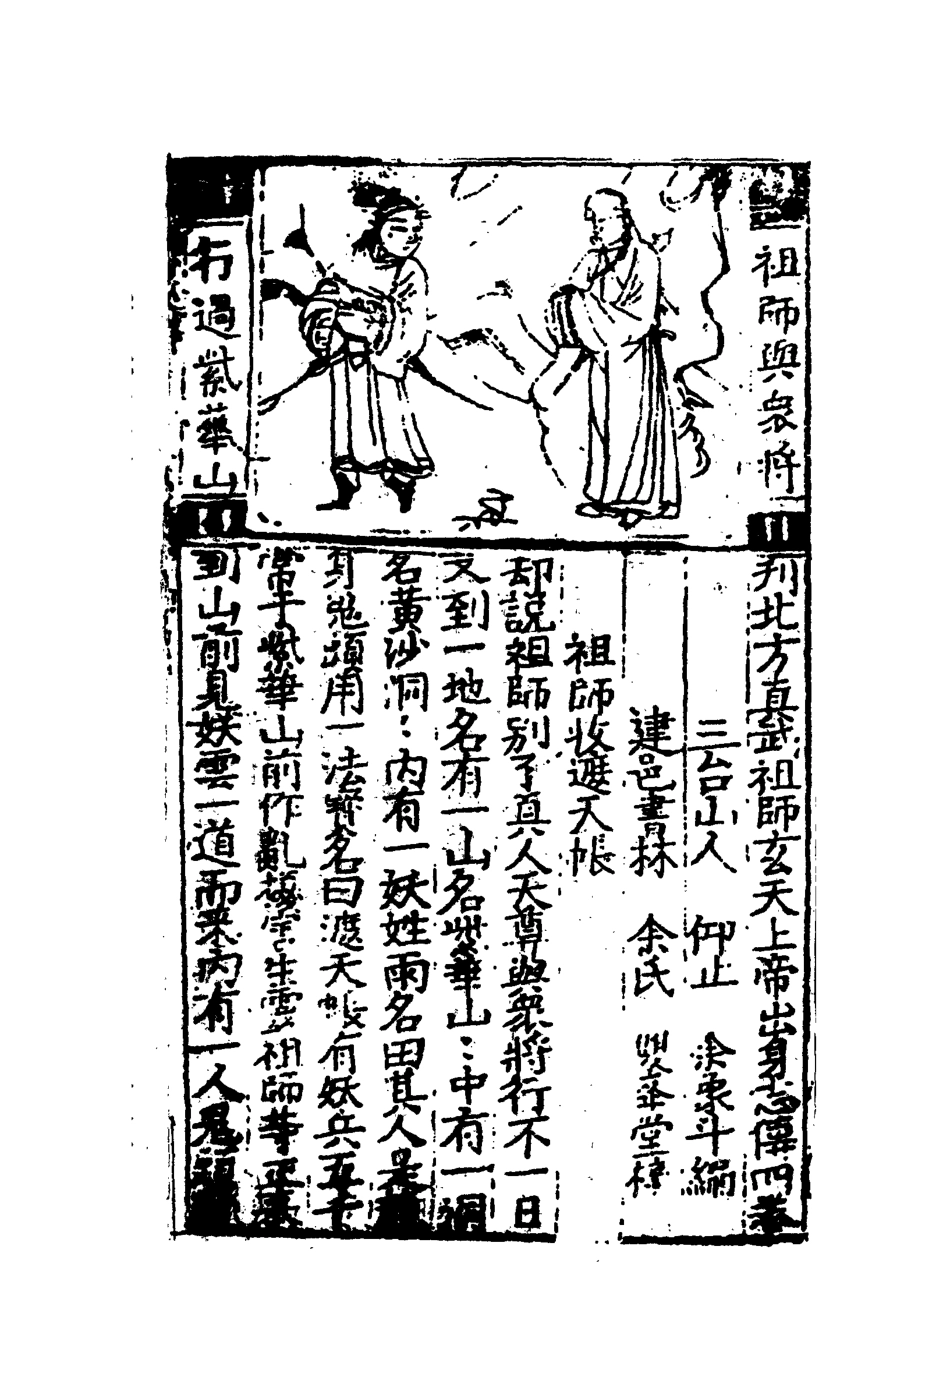 祖師與衆將
行過紫華山
刋北方真武祖師玄天上帝出身志傳四卷
三台山人　仰止　余象斗　編
建邑書林　余氏　雙峯堂　梓
祖師收遮天帳
却說祖師別了真人天尊與衆將行不一日
又到一地名有一山名紫華山〻中有一洞
名黄沙洞〻内有一妖姓雨名田其人是
身鬼頭用一法寳名曰遮天帳有妖兵五千
常于紫華山前作亂
生靈祖師等正
到山前見妖雲一道而來内有一人鬼頭